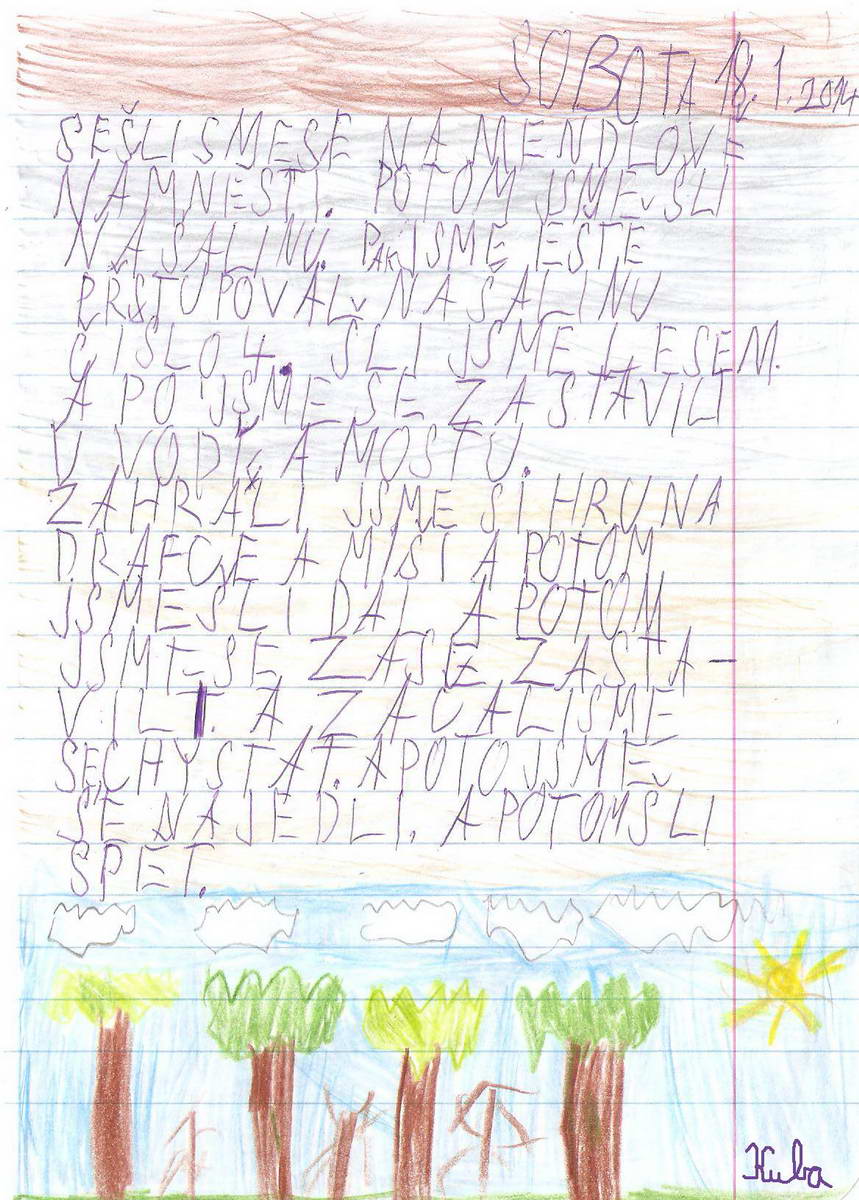 SOBOTA 18.1.2014
SEŠLISMESE NA MENDLOVĚ
NÁMNESTI. POTOM JSME ŠLI
NA ŠALINU. PAK JSME JEŠTE
PŘSTUPOVAL NA ŠALINU
ČISLO 4. ŠLI JSME LESEM.
A PO JSME SE ZASTAVILI
U VODI A MOSTU.
ZAHRÁLI JSME SI HRU NA
DRAFCE A MISI A POTOM
JSME SLI DAL A POTOM
JSME SE ZASE ZASTA-
VILI. A ZACALISME
SECHYSTAT. A POTO JSME
SE NAJEDLI. A POTOM ŠLI
SPET.
Kuba